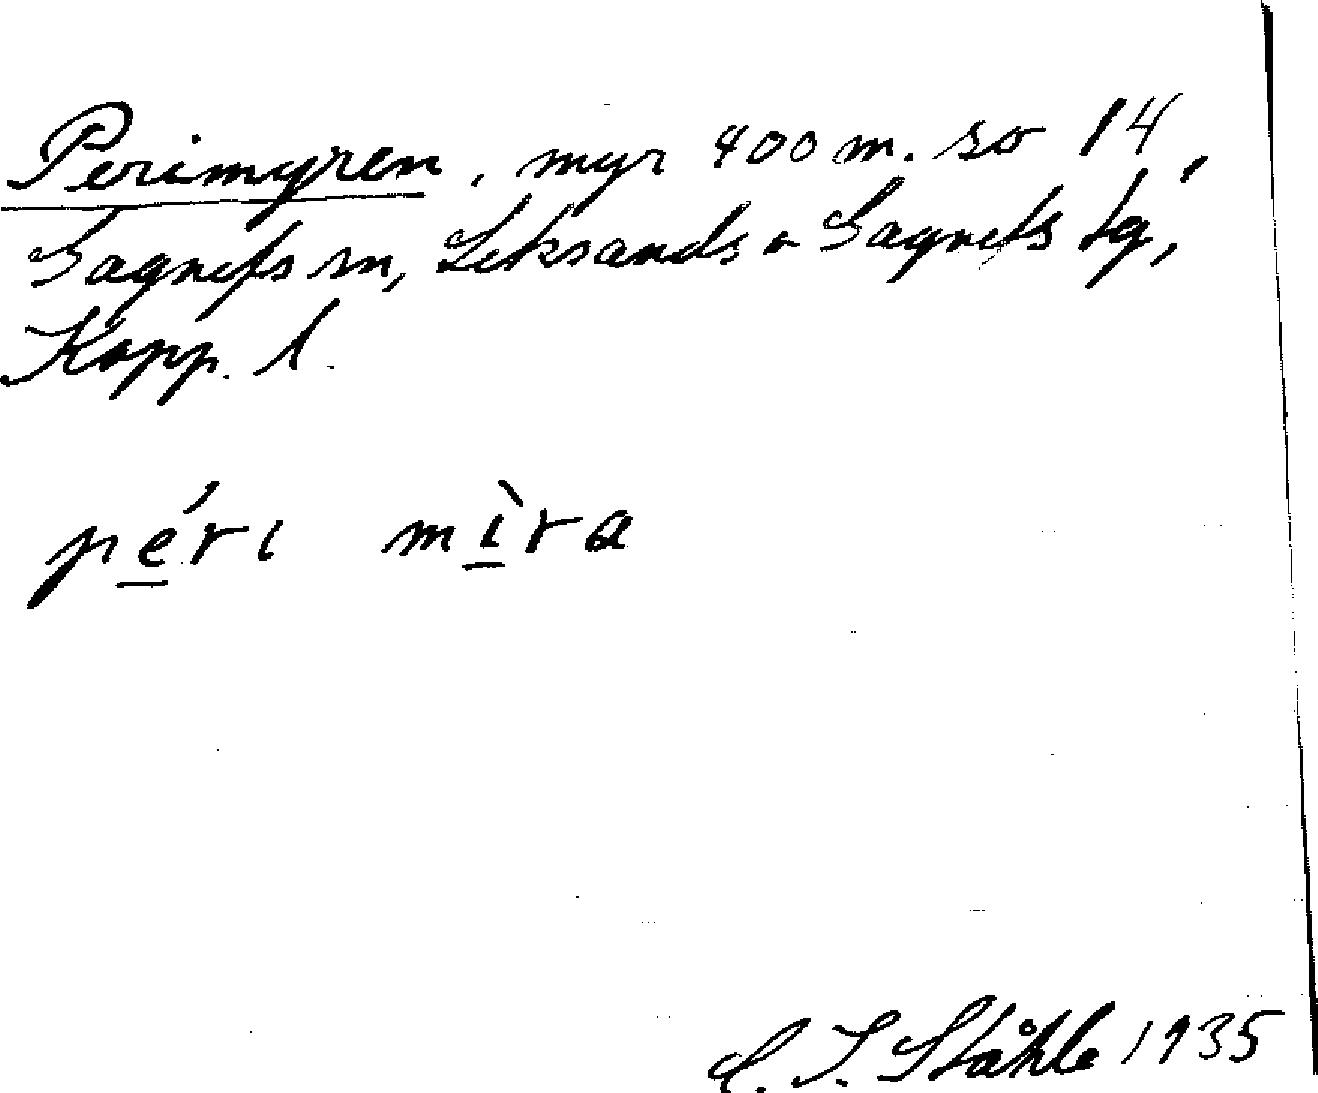 Perimyren, myr 400 m. so 14,
Gagnefs sn, Leksands o Gagnefs tg,
Kopp. l.
péri mìra
C. I. Ståhle 1935